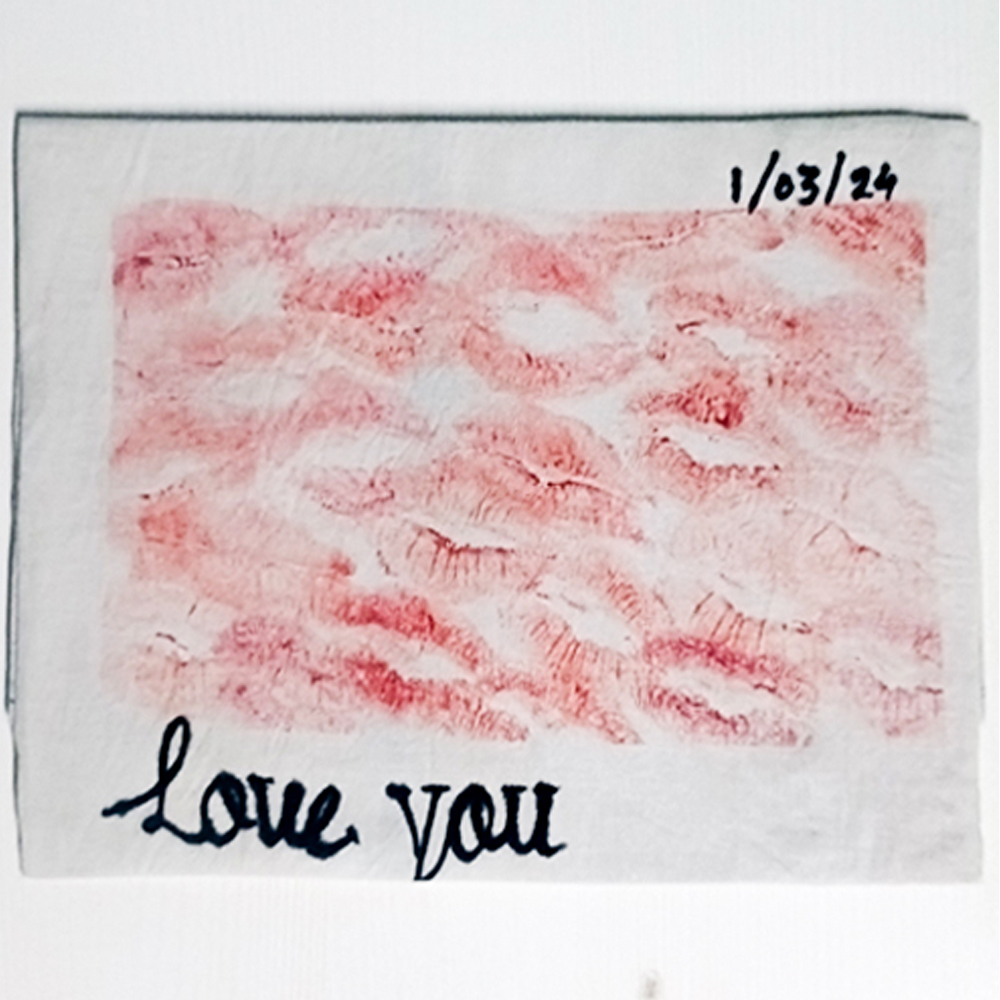 1/03/24
Love you